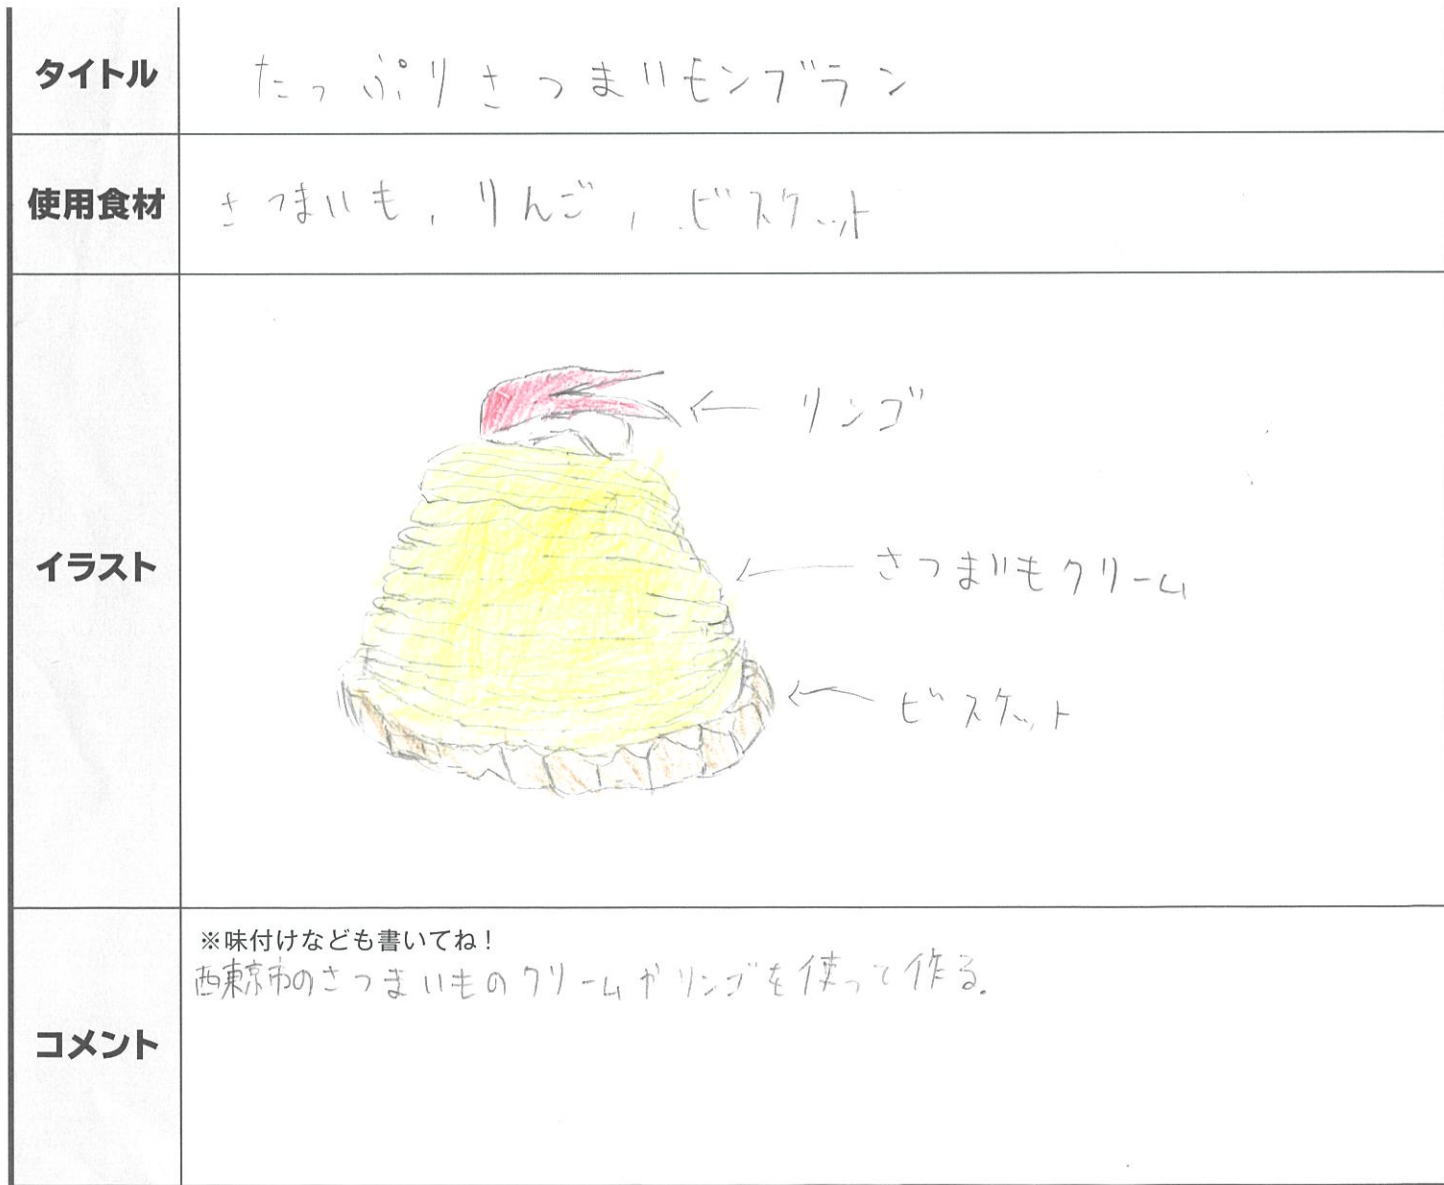 タイトル
たっぷりさつまいモンブラン
使用食材
さつまいも、りんご、ビスケット
イラスト
リンゴ
さつまいもクリーム
ビスケット
コメント
※味付けなども書いてね！
西東京市のさつまいものクリームやリンゴを使って作る。